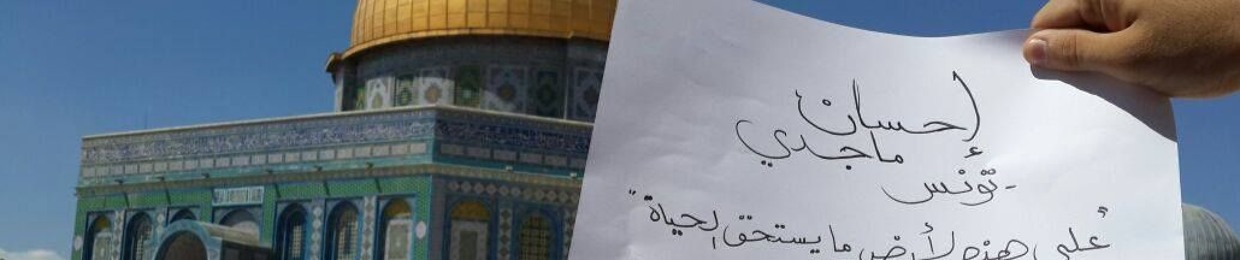 إحسان
ماجدي
- تونس
"على هذه لأرض ما يستحق الحياة"